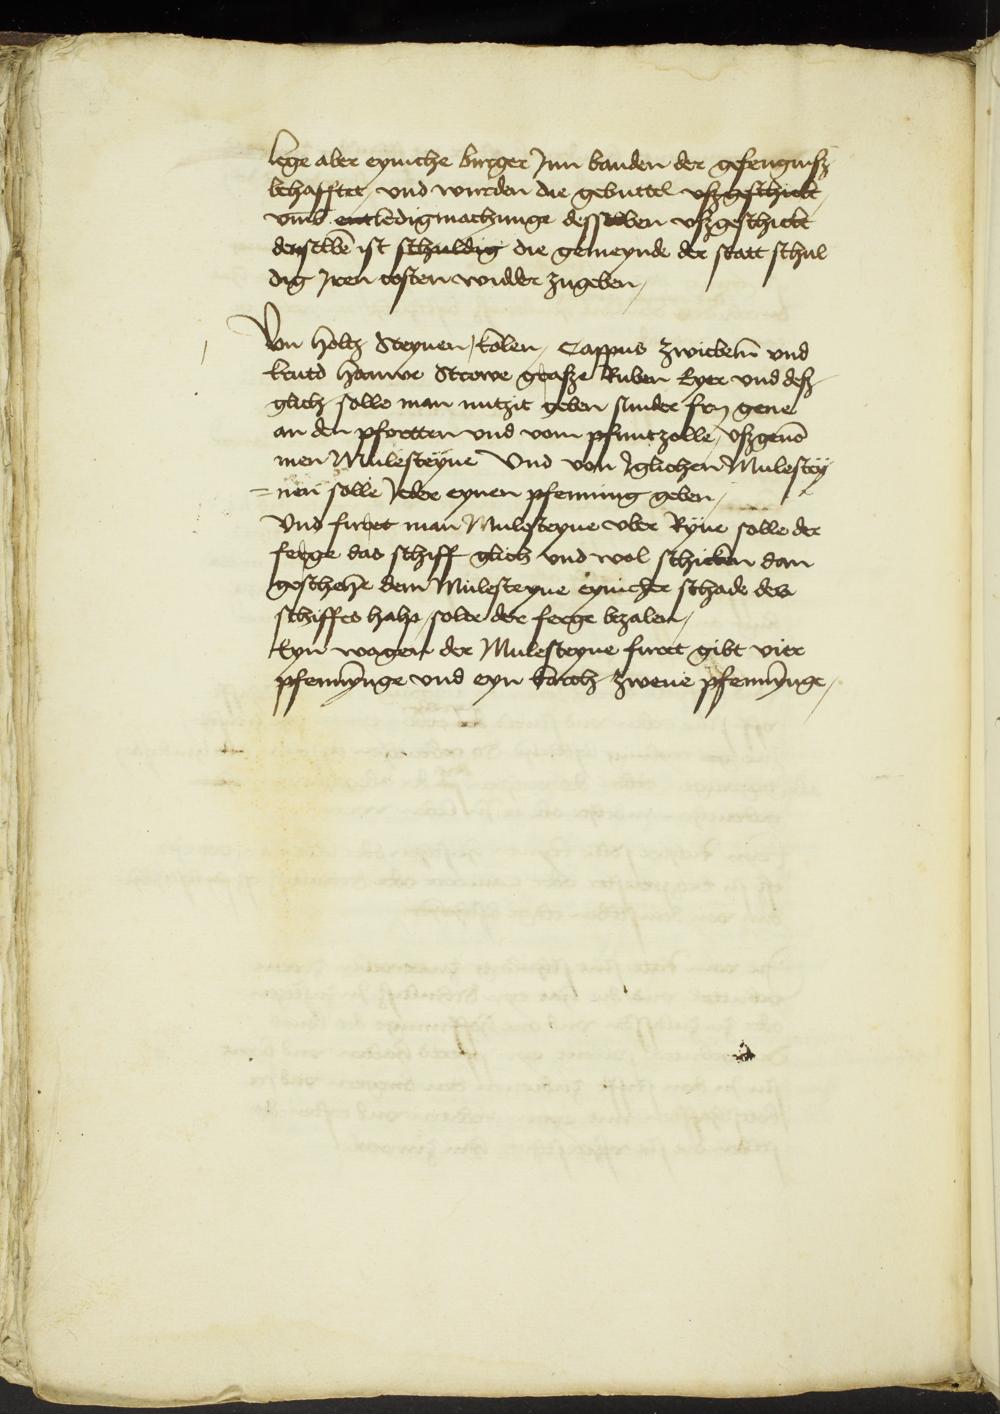 lege aber eyniche burger Jnn banden der gefengnisz
behafftet, vnd wurden die gebuttel vszgeschickt,
vmb entledigmachunge desselben vszgeschickt
denselbē ist schuldig die gemeynde der statt schul
dig Jren costen widder zugeben,
Von holtz Steynen, kolen, Cappus zwiebelñ vnd
krutd hauwe Strowe grasze Ruben Eyer vnd desz
glich solle man nutzit geben sunder fry gene
an den pfortten vnd vom pfuntzolle, vszgenō
men Mulesteyne Vnd von Jglichen Mulestey
=nen solle Jeder eynen pfenning geben,
Vnd furet man Mulesteyne vber Ryne solle der
ferge das schiff glich vnd wol schicken dan
geschehe dem Mulesteyne eynicher schade des
schiffes halp, solte der ferge bezalen,
Eyn wagen der Mulesteyne furet gibt vier
pfennynge vnd eyn karch zwene pfennynge,